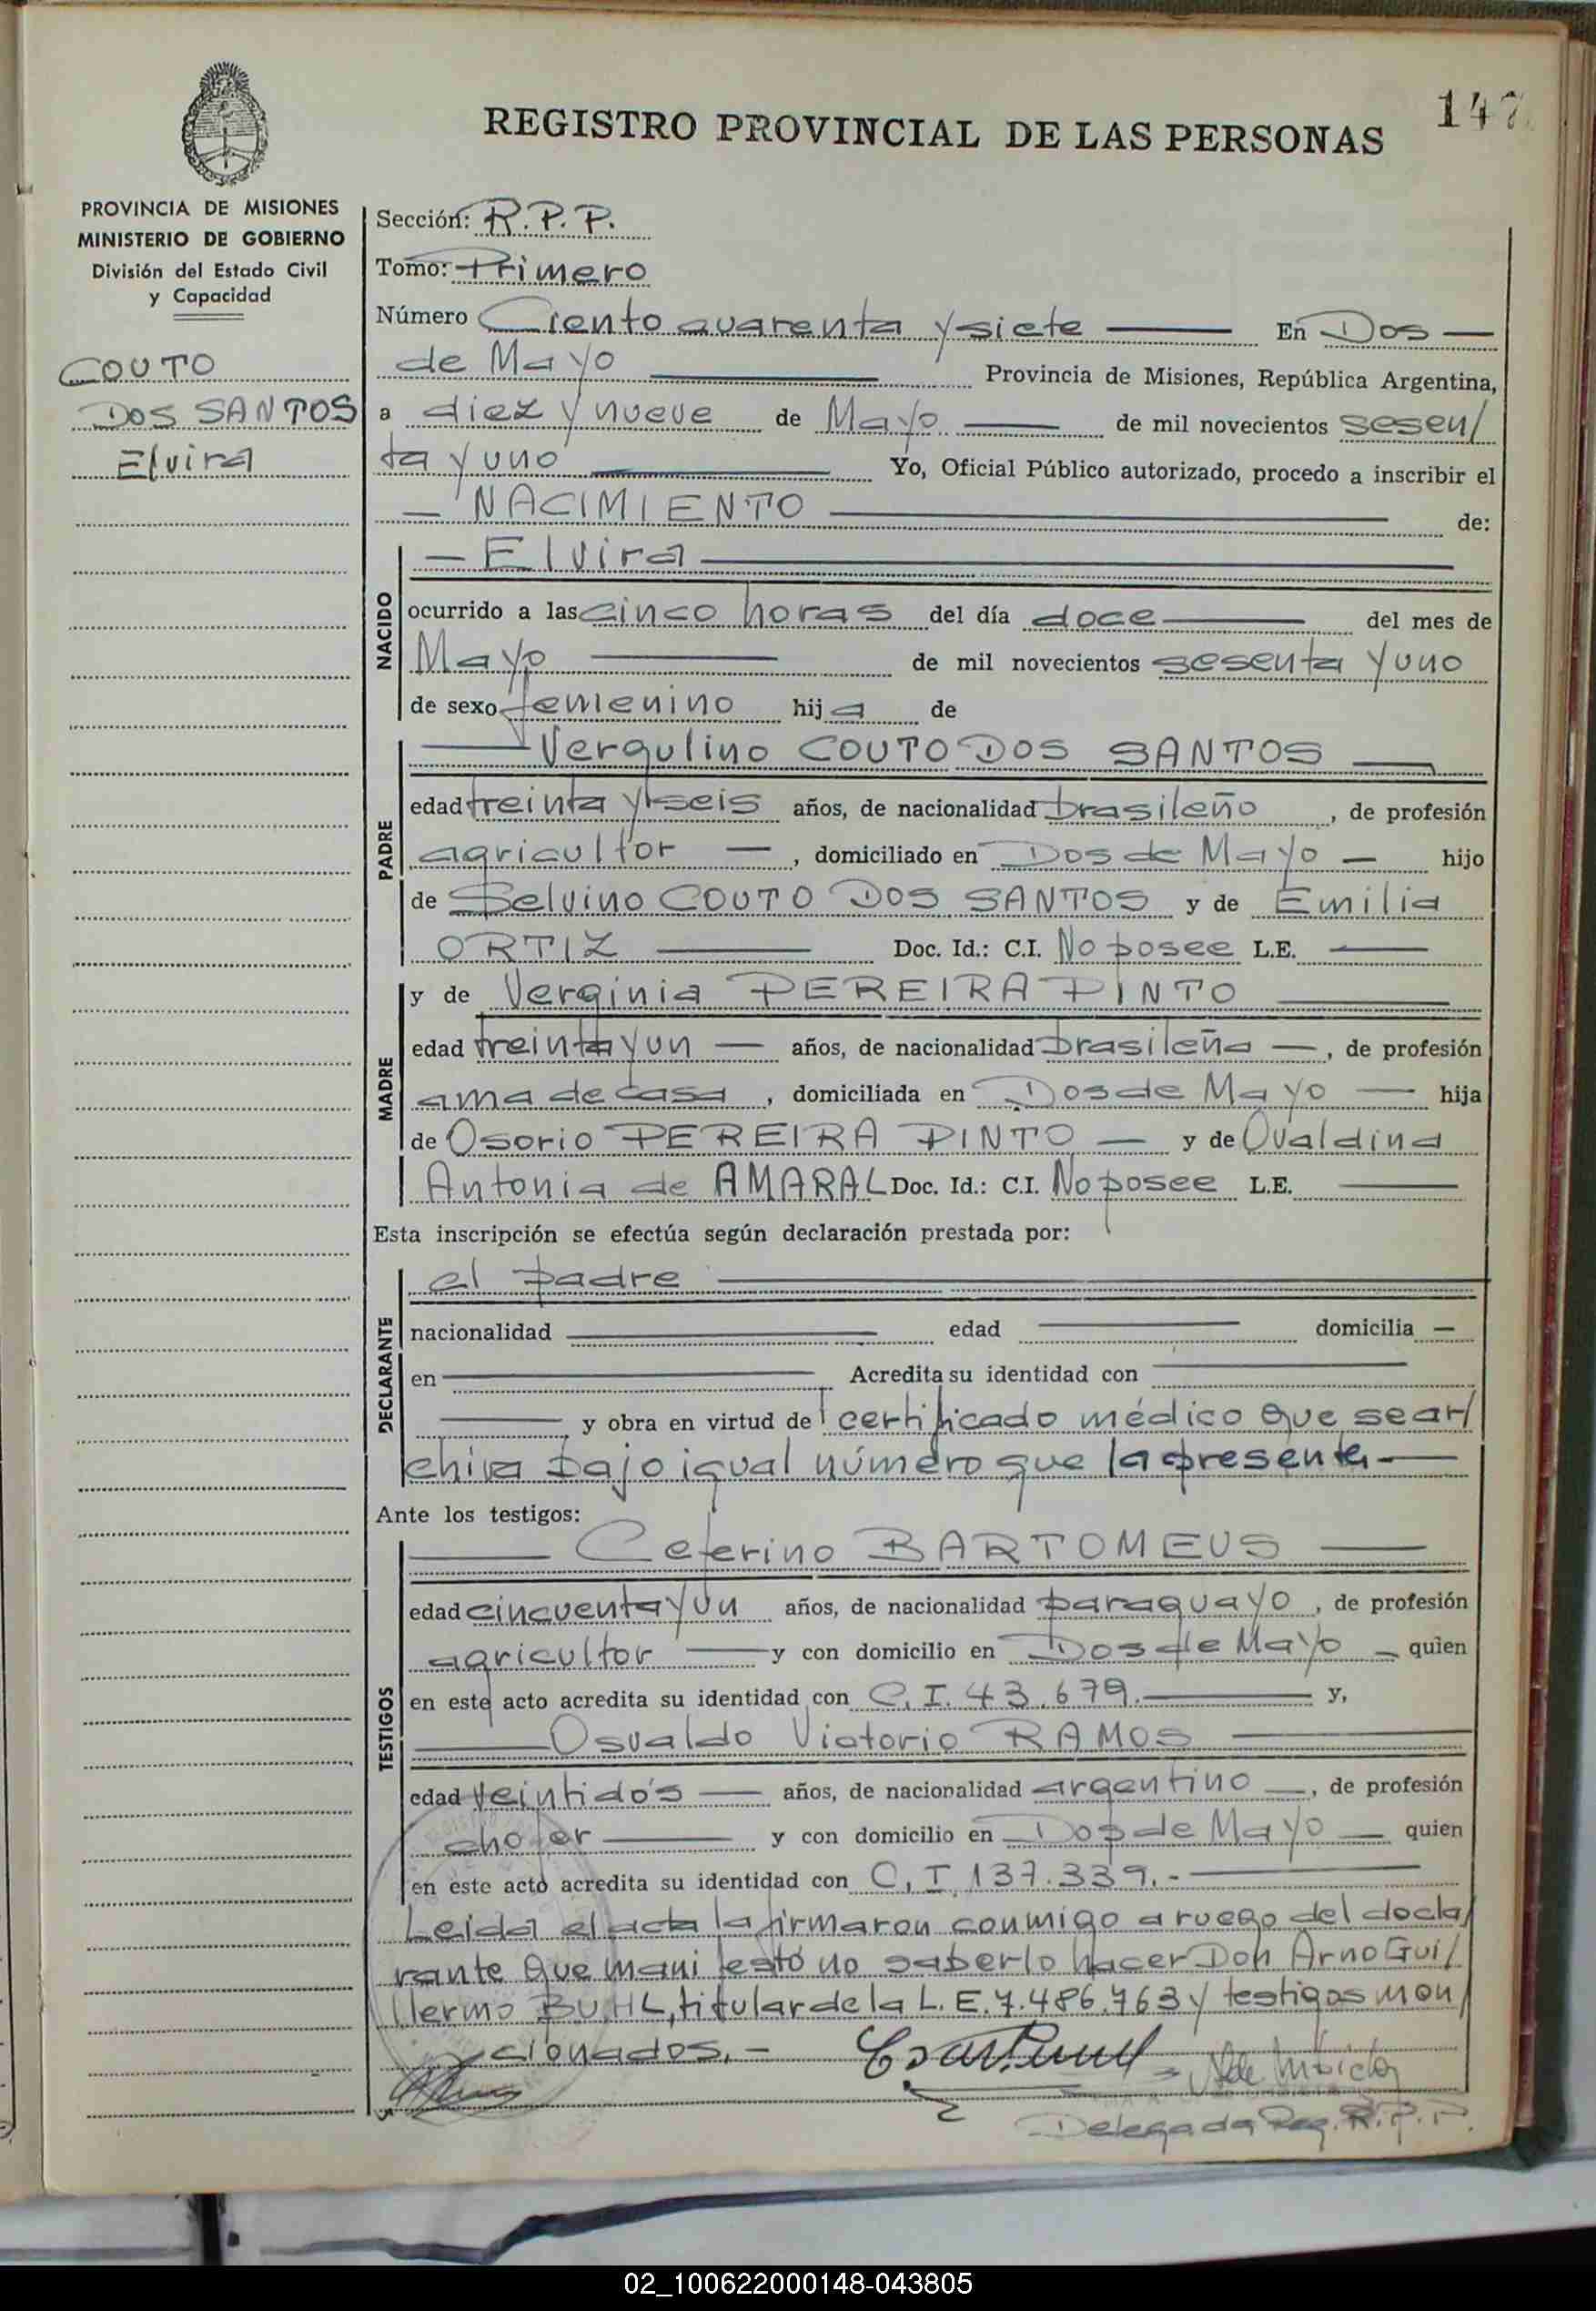 REGISTRO PROVINCIAL DE LAS PERSONAS
147
PROVINCIA DE MISIONES
MINISTERIO DE GOBIERNO
División del Estado Civil
y Capacidad
COUTO
DOS SANTOS
Elvira
Sección: R.P.P.
Tomo: Primero
Número Ciento cuarenta y siete En Dos
de Mayo Provincia de Misiones, República Argentina,
a diez y nueve de Mayo de mil novecientos sesen/
ta y uno Yo, Oficial Público autorizado, procedo a inscribir el
NACIMIENTO de:
NACIDO
Elvira
ocurrido a las cinco horas del día doce del mes de
Mayo de mil novecientos sesenta y uno
de sexo femenino hija de
PADRE
Vergulino COUTO DOS SANTOS
edad treinta y seis años, de nacionalidad brasileño, de profesión
agricultor, domiciliado en Dos de Mayo hijo
de Selvino COUTO DOS SANTOS y de Emilia
ORTIZ Doc. Id.: C.I. No posee L.E.
MADRE
y de Verginia PEREIRA PINTO
edad treinta y un años, de nacionalidad brasileña, de profesión
ama de casa, domiciliada en Dos de Mayo hija
de Osorio PEREIRA PINTO y de Ovaldina
Antonia de AMARAL Doc. Id.: C.I. No posee L.E.
Esta inscripción se efectúa según declaración prestada por:
DECLARANTE
el padre
nacionalidad edad domicilia
en Acredita su identidad con
y obra en virtud de certificado médico que se ar/
chiva bajo igual número que la presente.-
Ante los testigos:
TESTIGOS
Ceferino BARTOMEUS
edad cincuenta y un años, de nacionalidad paraguayo, de profesión
agricultor y con domicilio en Dos de Mayo quien
en este acto acredita su identidad con C.I. 43.679.- y,
Osvaldo Victorio RAMOS
edad veintidós años, de nacionalidad argentino, de profesión
chofer y con domicilio en Dos de Mayo quien
en este acto acredita su identidad con C.I 137.339.-
Leida el acta la firmaron conmigo a ruego del decla/
rante que manifestó no saberlo hacer Don Arno Gui/
llermo BUHL, titular de la L.E. 7.486.763 y testigos men/
cionados.-
Delegada Reg. R.P.P.
02_100622000148-043805